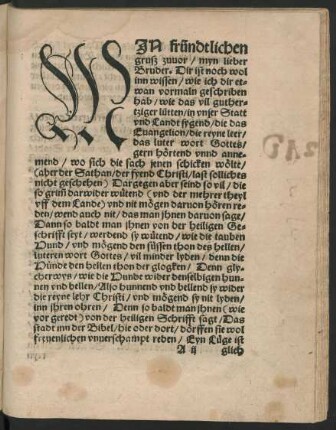 MIN fründtlichen
gruß zuuor / myn lieber
Bruder. Dir ist noch wol
inn wissen / wie ich dir et-
wan vormaln geschriben
hab / wie das vil guther-
tziger lütten / in vnser Statt
vnd Landt sygend / die das
Euangelion / die reyne leer /
das luter wort Gottes /
gern hörtend vnnd anne-
mend / wo sich die sach jenen schicken wölte /
(aber der Sathan / der fyend Christi / last sollichts
nicht geschehen) Dargegen aber seind so vil / die
so grim̃ darwider wütend (vnd der mehrer theyl
vff dem Lande) vnd nit mögen daruon hören re-
den / wend auch nit / das man jhnen daruon sage /
Dann so baldt man jhnen von der heiligen Ge-
schrifft seyt / werdend sy wütend / wie die tauben
Hund / vnd mögend den süssen thon des hellen /
luteren wort Gottes / vil minder lyden / denn die
Hünde den hellen thon der glogken / Denn gly-
cherwys / wie die Hunde wider denselbigen hun-
nen vnd bellen / Also hunnend vnd bellend sy wider
die reyne lehr Christi / vnd mögend sy nit lyden /
inn jhren ohren / Denn so baldt man jhnen (wie
vor geredt) von der heiligen Schrifft sagt / Das
stadt inn der Bibel / hie oder dort / dörffen sie wol
fräuenlichen vnuerschampt reden / Eyn Lüge ist
A ij glich